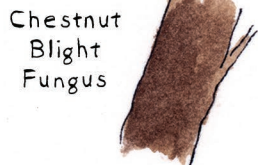 Chestnut
Blight
Fungus